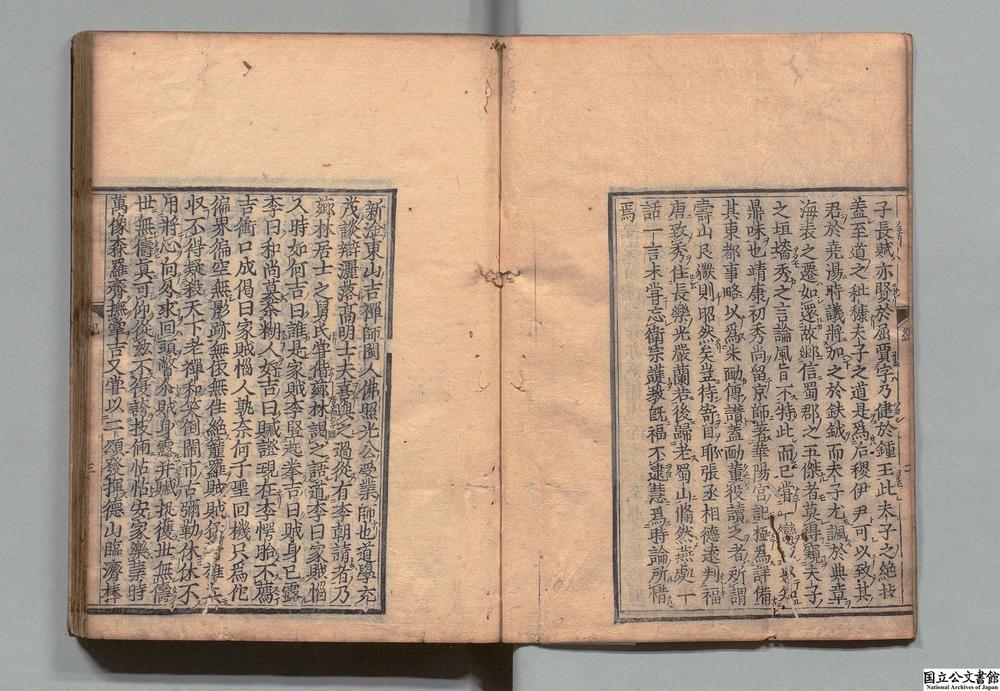 子長賦亦賢於屈賈字乃健於鍾王此夫子之絶技
蓋至道之秕糠夫子之道是爲后稷伊尹可以致其
君於堯湯時議將加之於鈇鉞而夫子尤諴於典章
海表之遷如還故鄉信蜀郡之五傑者莫得窺夫子
之垣墻秀之言論風旨不特此而已嘗一臠
鼎味也靖康初秀尚留京師著華陽宮記極爲詳備
其東都事略以爲朱勔傳讚蓋勔董役讀之者所謂
壽山艮嶽則昭然矣豈待寄目耶張丞相德遠判福
唐致秀住長樂光嚴蘭若後歸老蜀山翛然燕處一
話一言未嘗忘衛宗護教旣福不逮慧爲時論所惜
焉
新淦東山吉禪師閩人佛照光公受業師也道學充
茂談辯灑落高明士夫喜與之過從有李朝請者乃
薌林居士之舅氏嘗借薌林謁之語道李曰家賊惱
人時如何吉曰誰是家賊李竪起拳吉曰賊身已露
李曰和尚莫茶糊人好吉曰贓證現在李愕眙不薦
吉衝口成偈曰家賊惱人孰奈何千聖回機只爲佗
徧界徧空無影跡無依無住絶籠羅賊賊猛將雄兵
収不得疑殺天下老禪和笑倒閙市古彌勒休休不
用將心向外求回頭瞥尓賊身露并贓捉獲世無儔
世無儔真可仰從玆不復誇技倆怗怗安家樂業時
萬像森羅齊撫掌吉又嘗以二頌發揮德山臨濟棒
國立公文書館
National Archives of Japan